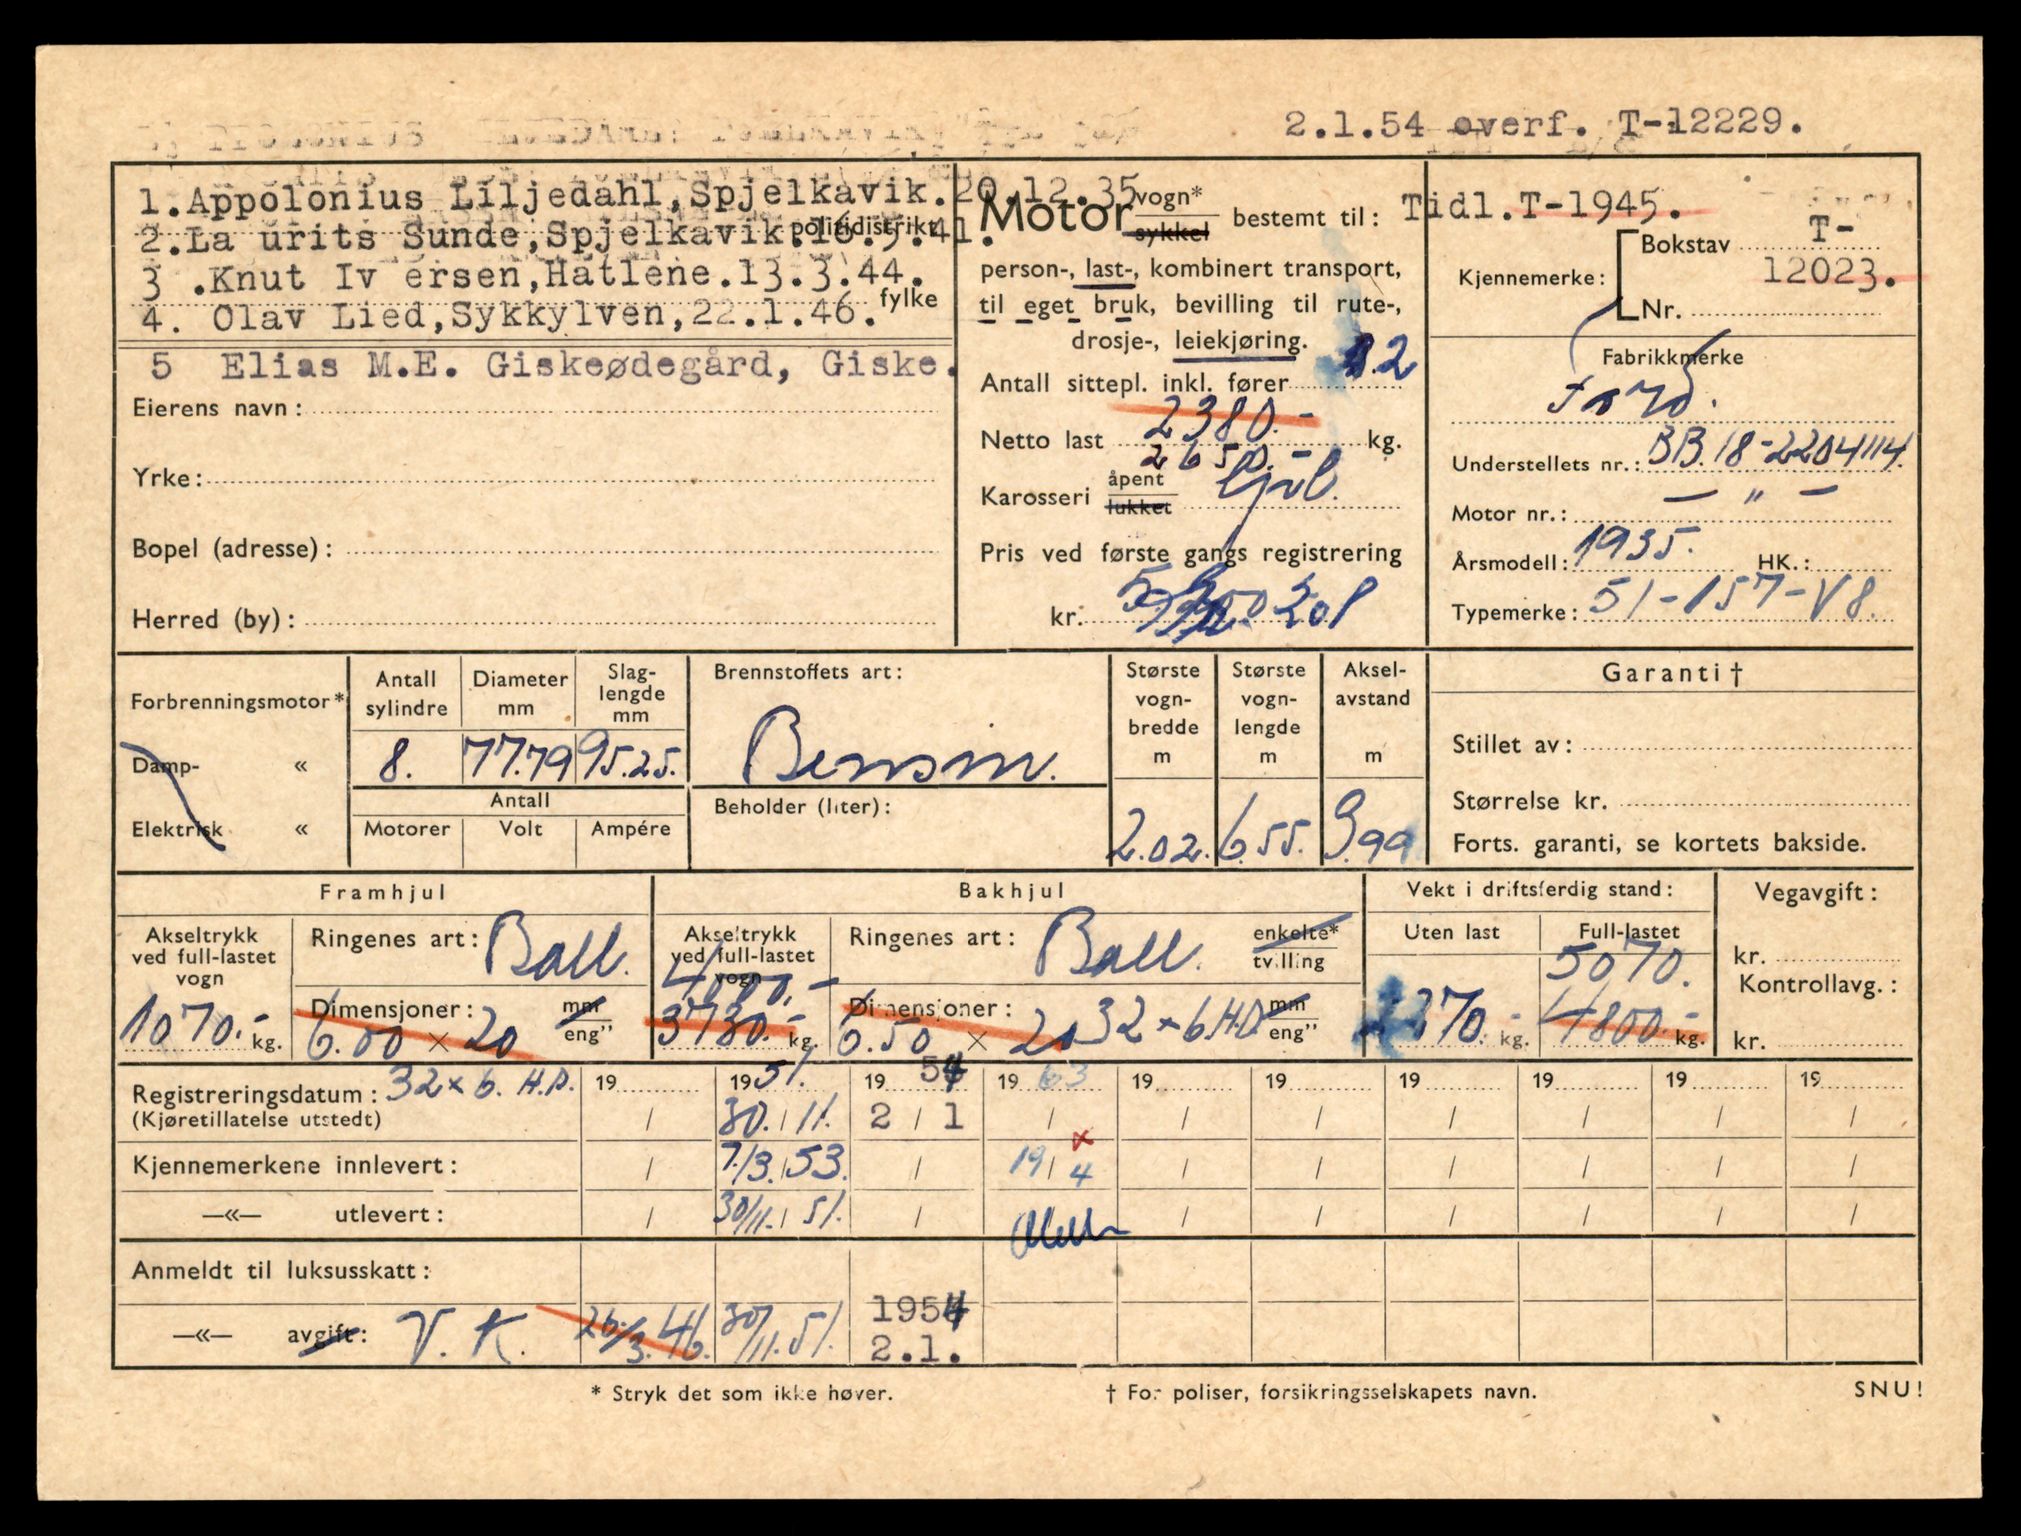 2.1.54 overf. T-12229.
1.Appolonius Liljedahl,Spjelkavik.20.12.35
2.La urits Sunde,Spjelkavik.16.9.41.
politidistrikt
3 .Knut Iv ersen,Hatlene.13.3.44.
4. Olav Lied,Sykkylven,22.1.46.
fylke
5 Elias M.E. Giskeødegård, Giske.
Eierens navn:
Yrke:
Bopel (adresse):
Herred (by):
Motor vogn* sykkel bestemt til:
person-, last-, kombinert transport,
til eget bruk, bevilling til rute-,
drosje-, leiekjøring.
Antall sittepl. inkl. fører 2
Netto last 2380.- kg.
2650.-
Karosseri åpent lukket
Pris ved første gangs registrering
kr.
Tidl.T-1945.
Kjennemerke: Bokstav T-
12023.
Nr.
Fabrikkmerke
Ford.
Understellets nr.: BB.18-2204114.
Motor nr.: — " —
Årsmodell: 1935. HK.:
Typemerke: 51-157-V8.
Forbrenningsmotor*
Damp- «
Elektrisk «
Antall sylindre
Diameter mm
Slag-lengde mm
8. 77.79 95.25.
Antall
Motorer Volt Ampére
Brennstoffets art:
Bensin.
Beholder (liter):
Største vogn-bredde m
2.02.
Største vogn-lengde m
6.55.
Aksel-avstand m
3.99
Garanti †
Stillet av:
Størrelse kr.
Forts. garanti, se kortets bakside.
Framhjul
Akseltrykk ved full-lastet vogn
1070.- kg.
Ringenes art: Ball.
Dimensjoner: mm eng”
6.00 × 20
Bakhjul
Akseltrykk ved full-lastet vogn
4000.-
3730.- kg.
Ringenes art: Ball. enkelte* tvilling
Dimensjoner: mm eng”
6.50 × 20 32 × 6 H.D.
Vekt i driftsferdig stand:
Uten last Full-lastet
5070.
70.- kg. 4800.- kg.
Vegavgift:
kr.
Kontrollavg.:
kr.
Registreringsdatum: 32 × 6. H.D. 19 1951. 1954 1963 19 19 19 19 19 19
(Kjøretillatelse utstedt) / 30./11. 2 / 1 / / / / / / /
Kjennemerkene innlevert: / 7./3. 53. / 19/4 x / / / / / /
—«— utlevert: / 30/11. 51. / / / / / / /
Anmeldt til luksusskatt:
—«— avgift: V. K. 26./3. 46. 30/11. 51. 1954
2.1.
* Stryk det som ikke høver.
† For poliser, forsikringsselskapets navn.
SNU!